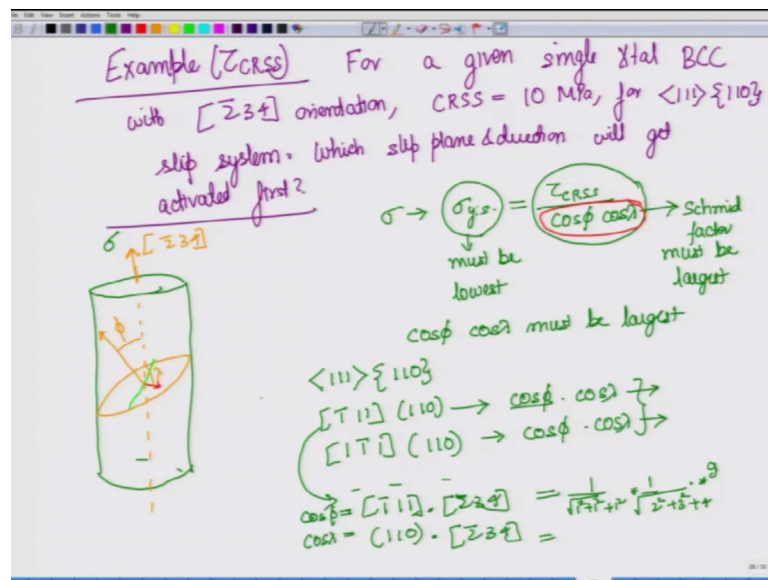 Edit View Insert Actions Tools Help
Example (τCRSS) For a given single Xtal BCC
with [2̄34] orientation, CRSS = 10 MPa, for <111>{110}
slip system. Which slip plane & direction will get
activated first?
σ → σy.s. = τCRSS / cosφ cosλ → Schmid factor must be largest
must be lowest
σ [2̄34]
φ
λ
cosφ cosλ must be largest
<111>{110}
[1̄11] (110) → cosφ . cosλ } →
[11̄1] (110) → cosφ . cosλ } →
cosφ = [1̄11] . [2̄34] = 1/√1²+1²+1² * 1/√2²+3²+4 * 9
cosλ = (110) . [2̄34] =